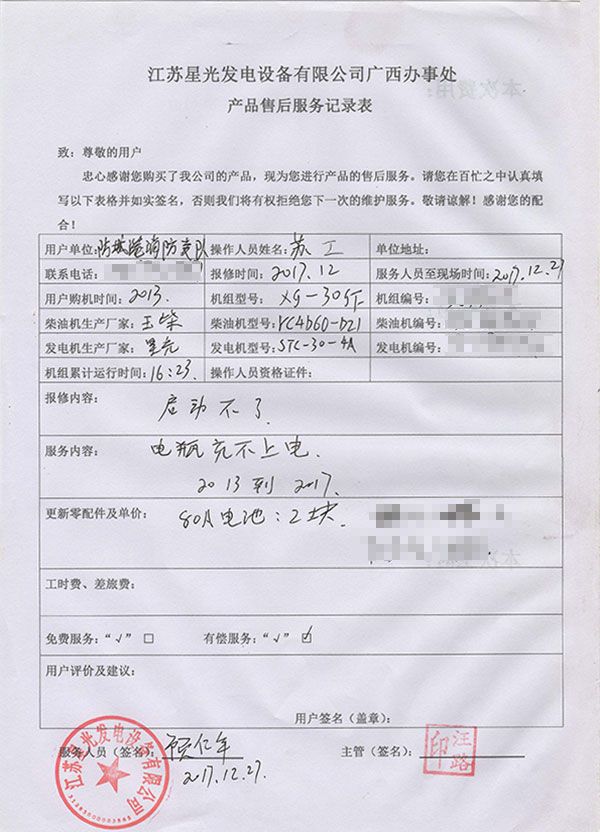 江苏星光发电设备有限公司广西办事处
产品售后服务记录表
致：尊敬的用户
忠心感谢您购买了我公司的产品，现为您进行产品的售后服务。请您在百忙之中认真填
写以下表格并如实签名，否则我们将有权拒绝您下一次的维护服务。敬请谅解！感谢您的配
合！
用户单位：防城港消防支队 操作人员姓名：苏工 单位地址：
联系电话： 报修时间：2017.12 服务人员至现场时间：2017.12.27
用户购机时间：2013. 机组型号：XG-30GF 机组编号：
柴油机生产厂家：玉柴 柴油机型号：YC4D60-D21 柴油机编号：
发电机生产厂家：星光 发电机型号：STC-30-4A 发电机编号：
机组累计运行时间：16:23 操作人员资格证件：
报修内容：
启动不了
服务内容：电瓶充不上电.
2013到2017.
更新零配件及单价：80A电池：2块.
工时费、差旅费：
免费服务：“√” □ 有偿服务：“√” ☑
用户评价及建议：
用户签名（盖章）：
服务人员（签名）：顾仁年 主管（签名）：
2017.12.27.
江苏星光发电设备有限公司
汪路印
本次费用：